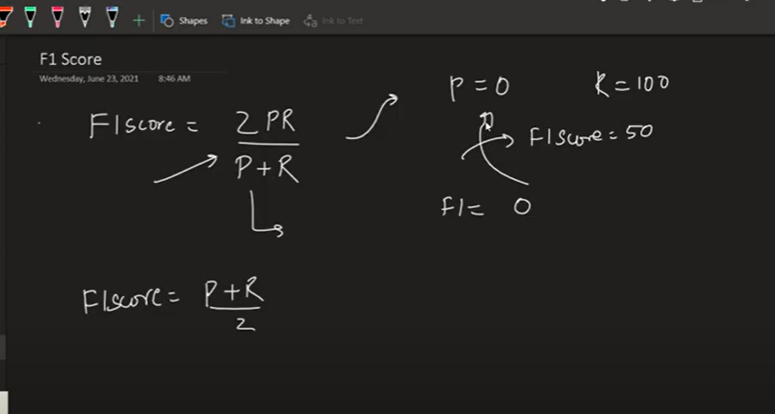 Shapes
Ink to Shape
Ink to Text
F1 Score
Wednesday, June 23, 2021 8:46 AM
F1score = 2PR
P+R
P = 0 R = 100
F1score = 50
F1 = 0
F1score = P+R
2